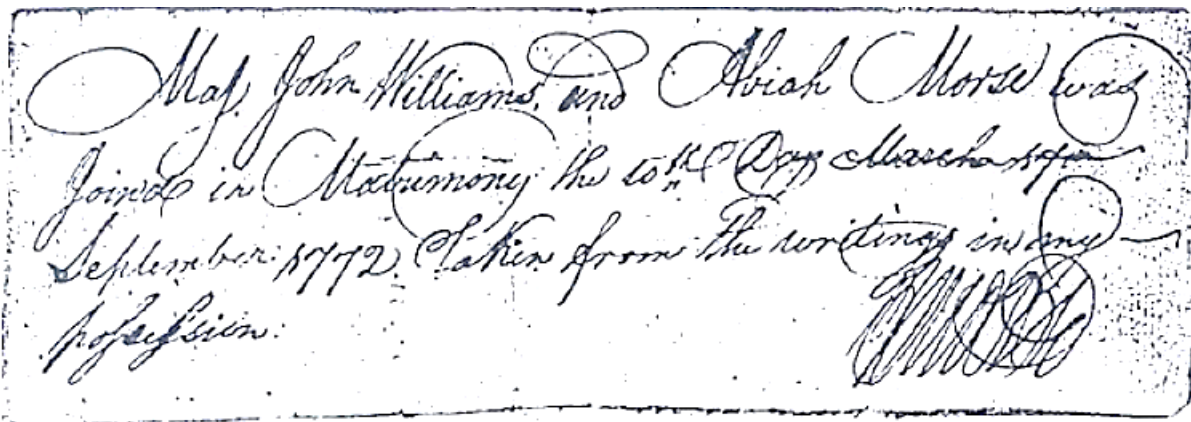 Maj. John Williams. and Abiah Morse was
Joined in Matrimony the 10th Day March
September 1772. Taken from the writings in my
possession.